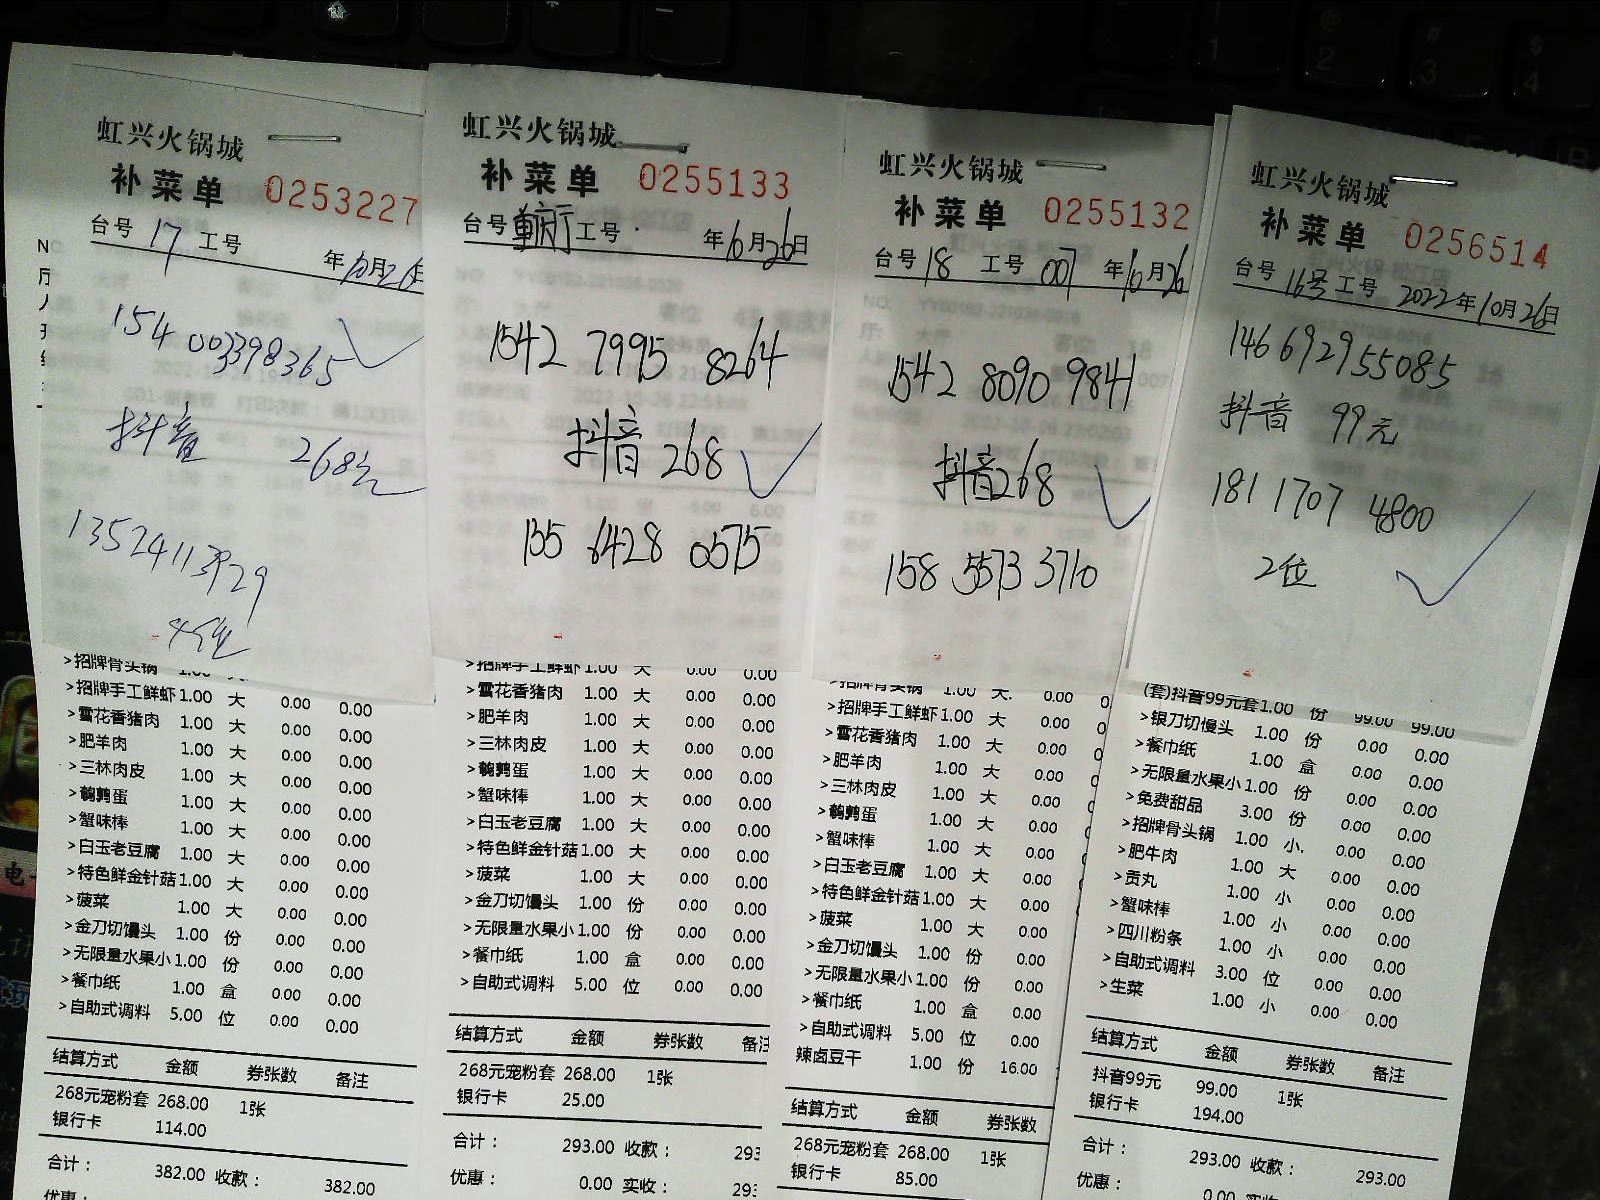 虹兴火锅城
补菜单 0253227
台号 17 工号 年10月26日
154 003398365
抖音 268元
13524113929
4位
>招牌骨头锅 1.00
>招牌手工鲜虾 1.00 大 0.00 0.00
>雪花香猪肉 1.00 大 0.00 0.00
>肥羊肉 1.00 大 0.00 0.00
>三林肉皮 1.00 大 0.00 0.00
>鹌鹑蛋 1.00 大 0.00 0.00
>蟹味棒 1.00 大 0.00 0.00
>白玉老豆腐 1.00 大 0.00 0.00
>特色鲜金针菇 1.00 大 0.00 0.00
>菠菜 1.00 大 0.00 0.00
>金刀切馒头 1.00 份 0.00 0.00
>无限量水果小 1.00 份 0.00 0.00
>餐巾纸 1.00 盒 0.00 0.00
>自助式调料 5.00 位 0.00 0.00
结算方式 金额 券张数 备注
268元宠粉套 268.00 1张
银行卡 114.00
合计： 382.00 收款： 382.00
优惠：
虹兴火锅城
补菜单 0255133
台号 工号 年10月26日
1542 7995 8264
抖音 268
155 6428 0575
>招牌手工鲜虾 1.00 大 0.00 0.00
>雪花香猪肉 1.00 大 0.00 0.00
>肥羊肉 1.00 大 0.00 0.00
>三林肉皮 1.00 大 0.00 0.00
>鹌鹑蛋 1.00 大 0.00 0.00
>蟹味棒 1.00 大 0.00 0.00
>白玉老豆腐 1.00 大 0.00 0.00
>特色鲜金针菇 1.00 大 0.00 0.00
>菠菜 1.00 大 0.00 0.00
>金刀切馒头 1.00 份 0.00 0.00
>无限量水果小 1.00 份 0.00 0.00
>餐巾纸 1.00 盒 0.00 0.00
>自助式调料 5.00 位 0.00 0.00
结算方式 金额 券张数 备注
268元宠粉套 268.00 1张
银行卡 25.00
合计： 293.00 收款： 293
优惠： 0.00 实收： 293
虹兴火锅城
补菜单 0255132
台号 18 工号 007 年10月26
1542 8090 9841
抖音268
158 5573 3710
>招牌骨头锅 1.00 大. 0.00
>招牌手工鲜虾 1.00 大 0.00
>雪花香猪肉 1.00 大 0.00
>肥羊肉 1.00 大 0.00
>三林肉皮 1.00 大 0.00
>鹌鹑蛋 1.00 大 0.00
>蟹味棒 1.00 大 0.00
>白玉老豆腐 1.00 大 0.00
>特色鲜金针菇 1.00 大 0.00
>菠菜 1.00 大 0.00
>金刀切馒头 1.00 份 0.00
>无限量水果小 1.00 份 0.00
>餐巾纸 1.00 盒 0.00
>自助式调料 5.00 位 0.00
辣卤豆干 1.00 份 16.00
结算方式 金额 券张数
268元宠粉套 268.00 1张
银行卡 85.00
虹兴火锅城
补菜单 0256514
台号 16号 工号 2022年10月26日
146692955085
抖音 99元
181 1707 4800
2位
(套)抖音99元套 1.00 份 99.00 99.00
>银刀切馒头 1.00 份 0.00 0.00
>餐巾纸 1.00 盒 0.00 0.00
>无限量水果小 1.00 份 0.00 0.00
>免费甜品 3.00 份 0.00 0.00
>招牌骨头锅 1.00 小. 0.00 0.00
>肥牛肉 1.00 大 0.00 0.00
>贡丸 1.00 小 0.00 0.00
>蟹味棒 1.00 小 0.00 0.00
>四川粉条 1.00 小 0.00 0.00
>自助式调料 3.00 位 0.00 0.00
>生菜 1.00 小 0.00 0.00
结算方式 金额 券张数 备注
抖音99元 99.00 1张
银行卡 194.00
合计： 293.00 收款： 293.00
优惠： 0.00 实收：